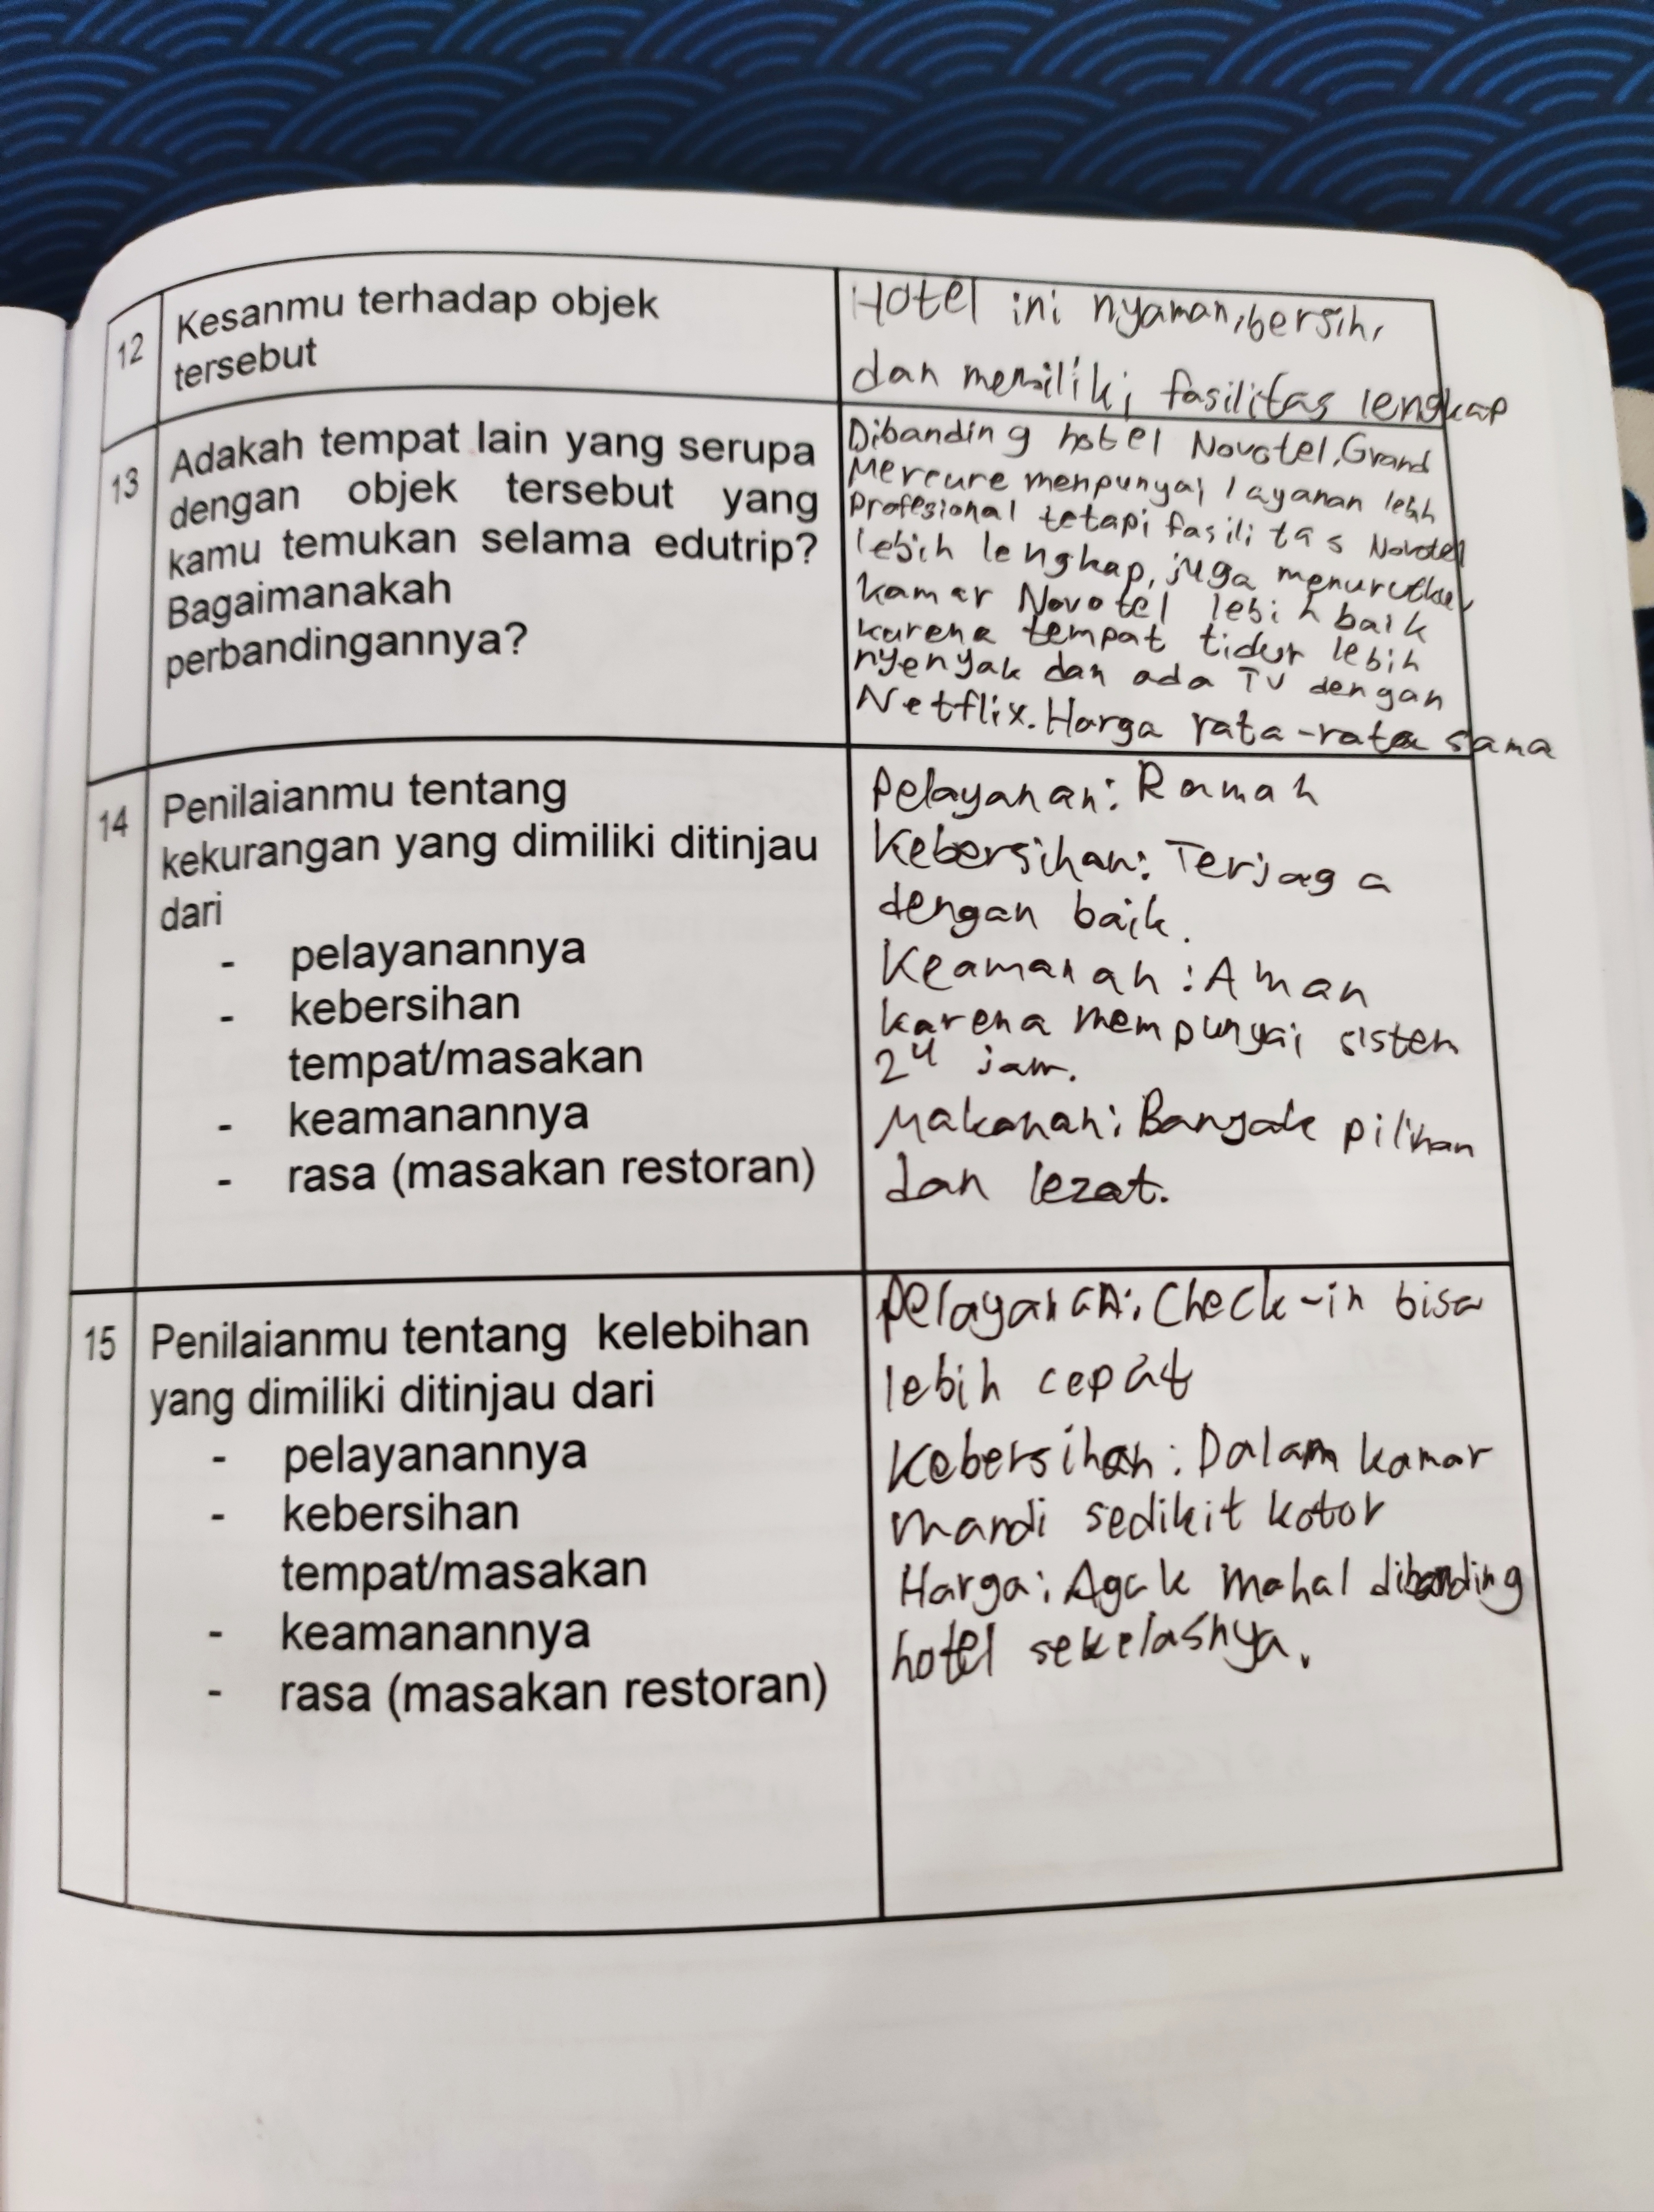 12
Kesanmu terhadap objek
tersebut
Hotel ini nyaman, bersih,
dan memiliki fasilitas lengkap
13
Adakah tempat lain yang serupa
dengan objek tersebut yang
kamu temukan selama edutrip?
Bagaimanakah
perbandingannya?
Dibanding hotel Novotel, Grand
Mercure menpunyai layanan lebih
Profesional tetapi fasilitas Novotel
lebih lengkap, juga menurutku
kamar Novotel lebih baik
karena tempat tidur lebih
nyenyak dan ada TV dengan
Netflix. Harga rata-rata sama
14
Penilaianmu tentang
kekurangan yang dimiliki ditinjau
dari
- pelayanannya
- kebersihan
tempat/masakan
- keamanannya
- rasa (masakan restoran)
Pelayanan: Ramah
Kebersihan: Terjaga
dengan baik.
Keamanan: Aman
karena mempunyai sistem
24 jam.
Makanan: Banyak pilihan
dan lezat.
15
Penilaianmu tentang kelebihan
yang dimiliki ditinjau dari
- pelayanannya
- kebersihan
tempat/masakan
- keamanannya
- rasa (masakan restoran)
Pelayanan: Check-in bisa
lebih cepat
Kebersihan: Dalam kamar
mandi sedikit kotor
Harga: Agak mahal dibanding
hotel sekelasnya.